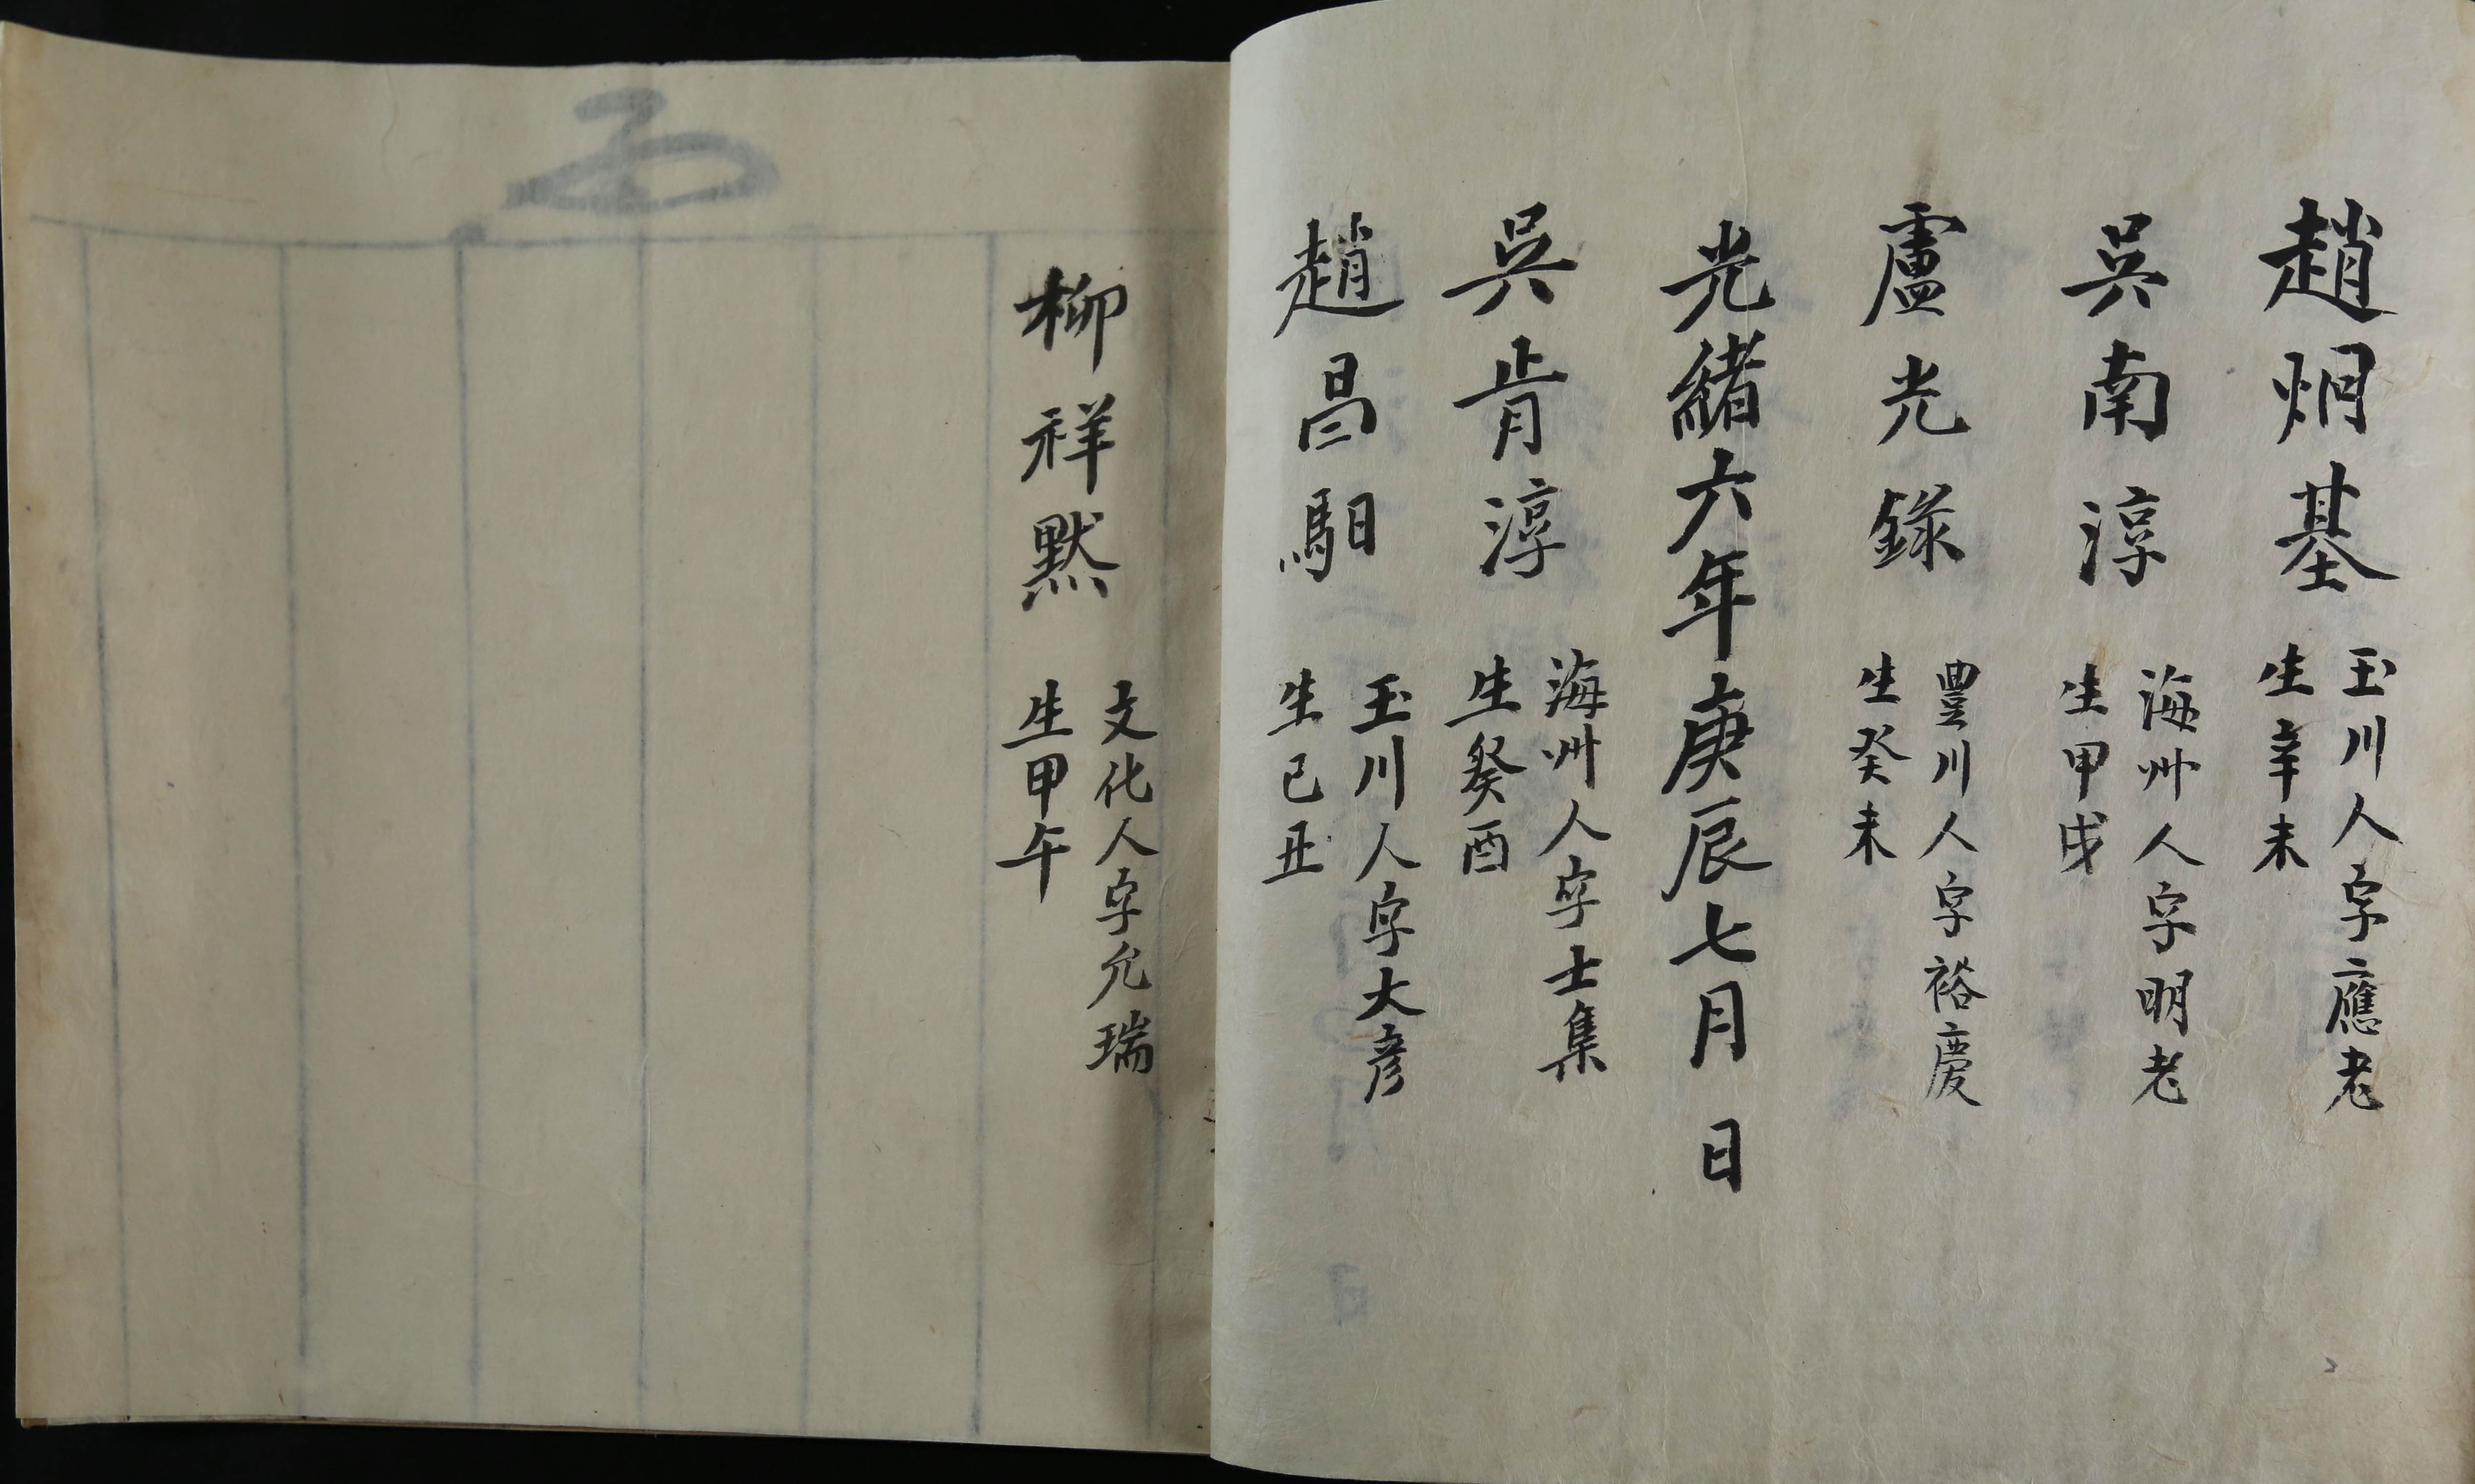 趙炯基 玉川人字應老
生辛未
吳南淳 海州人字明老
生甲戌
盧光錄 豐川人字裕慶
生癸未
光緖六年庚辰七月 日
吳肯淳 海州人字士集
生癸酉
趙昌馹 玉川人字大彦
生己丑
柳祥默 文化人字允瑞
生甲午